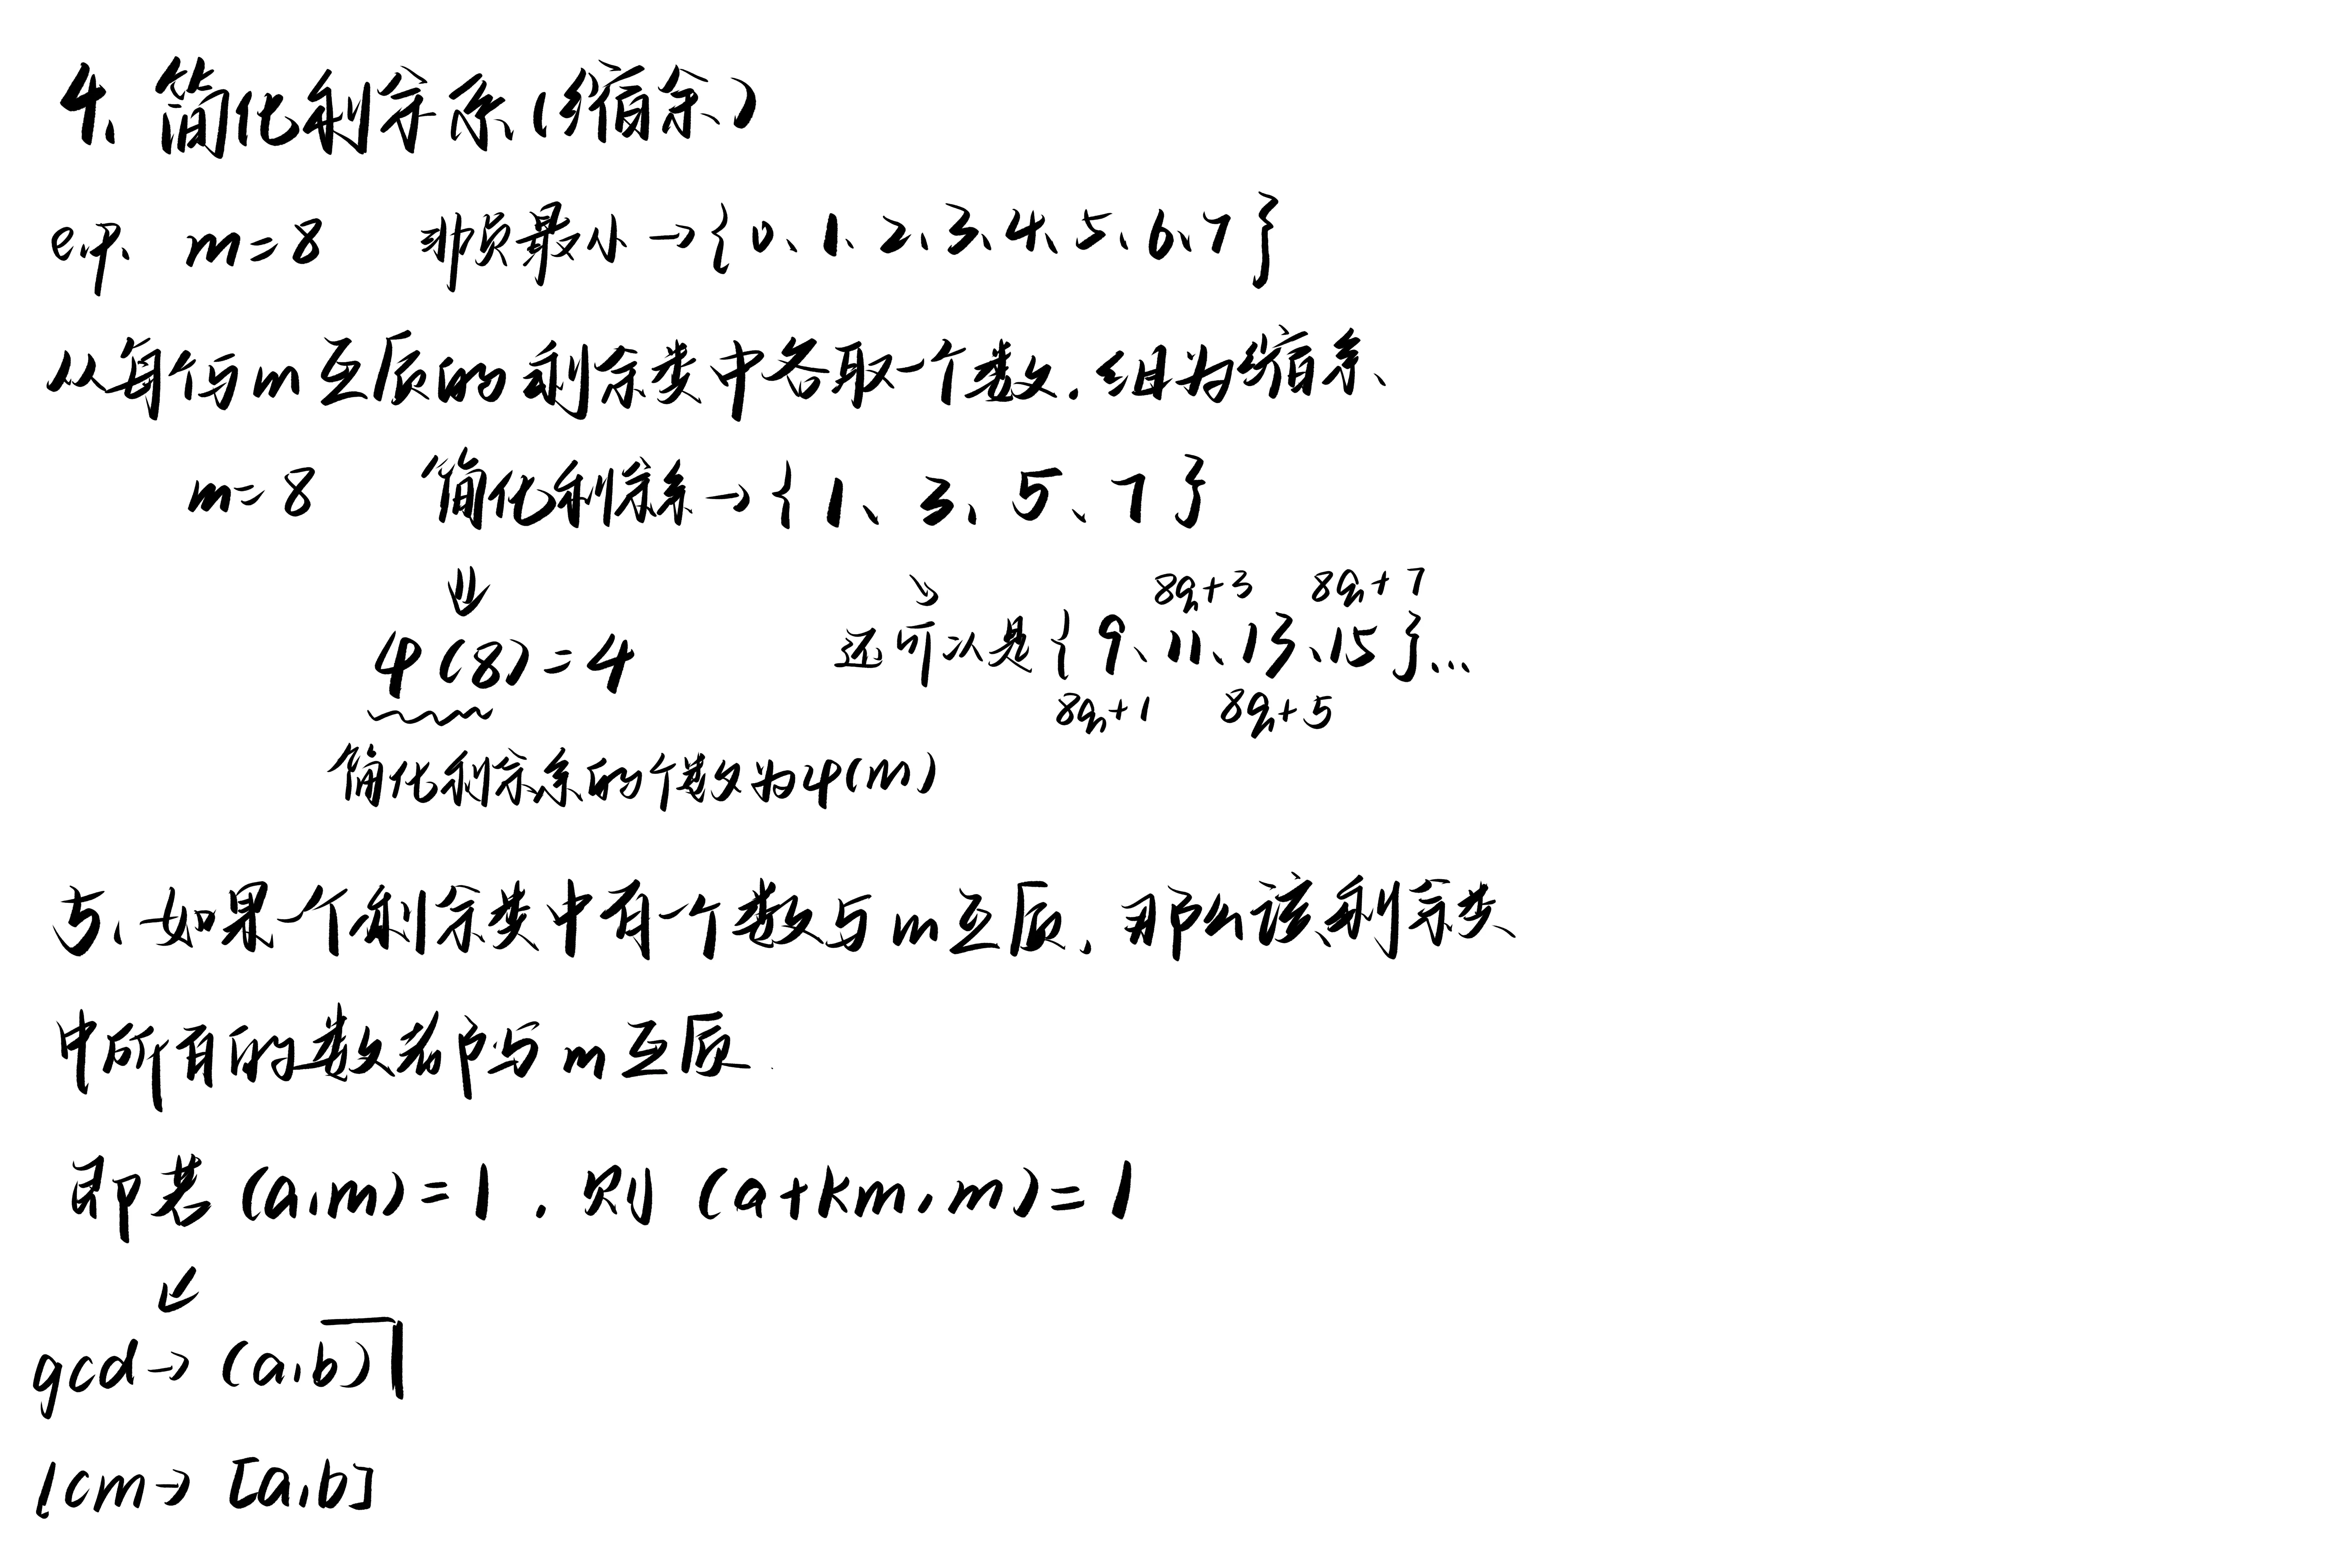 4、简化剩余系(缩系)
eg、 m=8 非负最小→{0、1、2、3、4、5、6、7}
从每个与m互质的剩余类中各取一个数,组为缩系、
m=8 简化剩余系→{1、3、5、7}
8q+3 8q+7
φ(8)=4 还可以是{9、11、13、15}...
8q+1 8q+5
简化剩余系的个数为φ(m)
5、如果一个剩余类中有一个数与m互质,那么该剩余类
中所有的数都与m互质.
即若(a,m)=1,则(a+km,m)=1
gcd→(a,b)
lcm→[a,b]